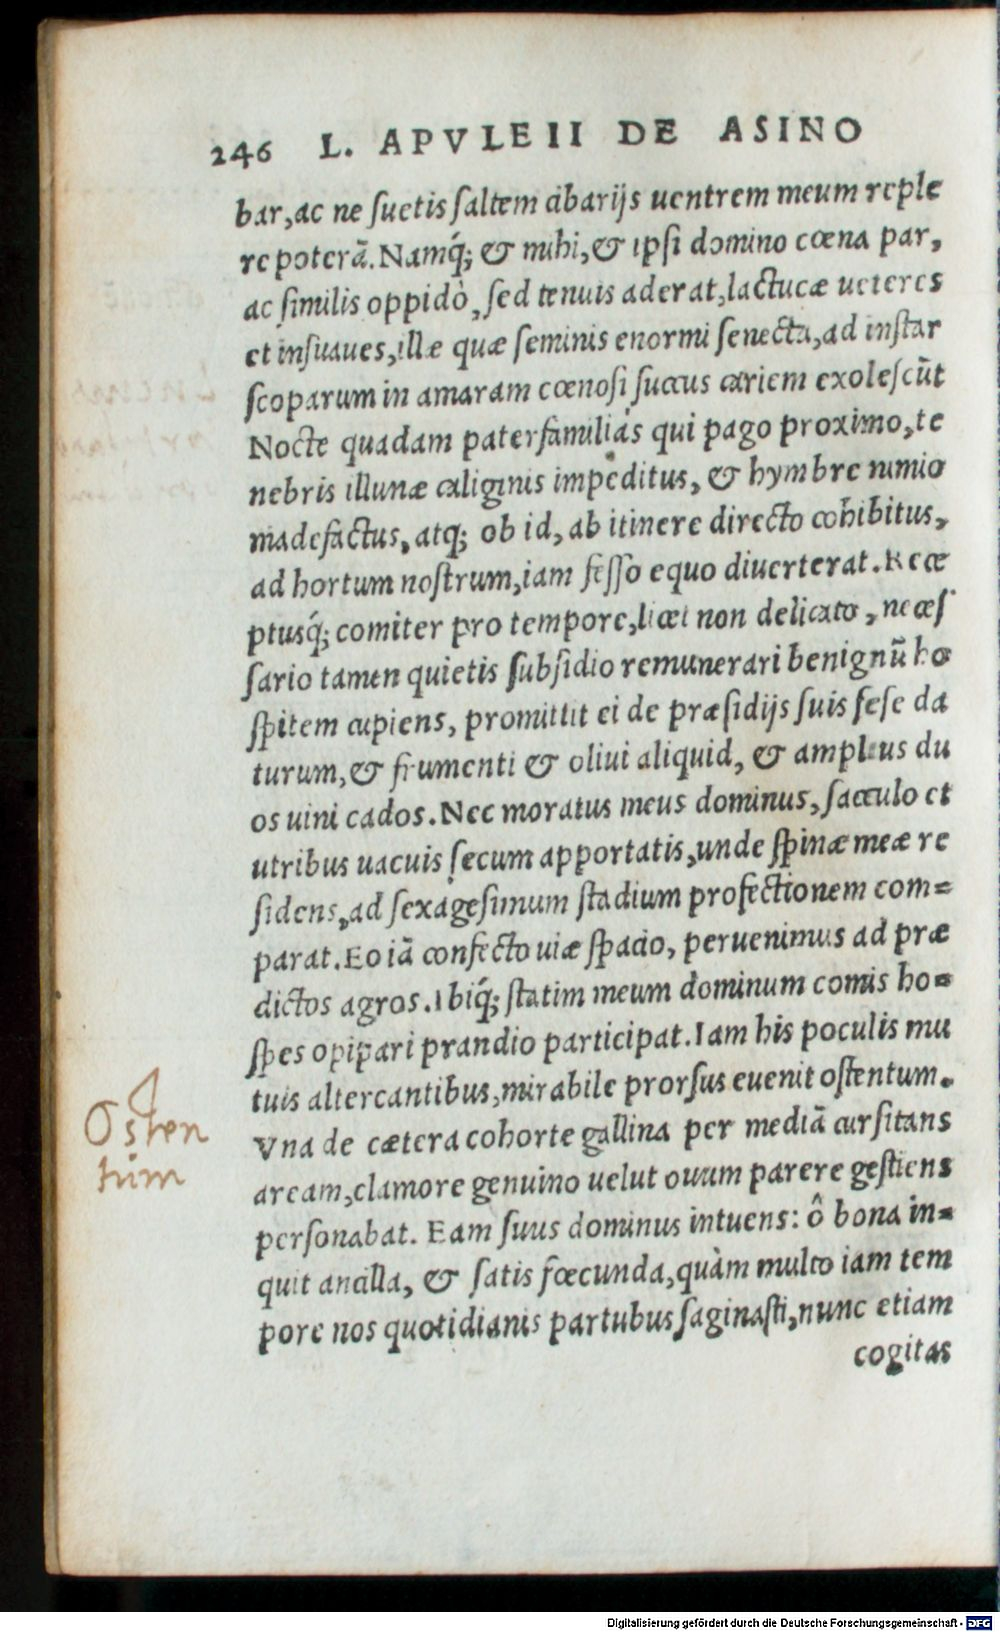 246 L. APVLEII DE ASINO
bar, ac ne ſuetis ſaltem cibarijs uentrem meum reple
re poterā. Namq́; & mihi, & ipſi domino cœna par,
ac ſimilis oppidò, ſed tenuis aderat, lactucæ ueteres
et inſuaues, illæ quæ ſeminis enormi ſenecta, ad inſtar
ſcoparum in amaram cœnoſi ſuccus cariem exoleſcūt
Nocte quadam paterfamiliás qui pago proximo, te
nebris illunæ caliginis impeditus, & hymbre nimio
madefactus, atq; ob id, ab itinere directo cohibitus,
ad hortum noſtrum, iam feſſo equo diuerterat. Rece
ptusq́; comiter pro tempore, licet non delicato, neceſ
ſario tamen quietis ſubſidio remunerari benignū ho
ſpitem cupiens, promittit ei de præſidijs ſuis ſeſe da
turum, & frumenti & oliui aliquid, & amplius du
os uini cados. Nec moratus meus dominus, ſacculo et
utribus uacuis ſecum apportatis, unde ſpinæ meæ re
ſidens, ad ſexageſimum ſtadium profectionem com=
parat. Eo iā confecto uiæ ſpacio, peruenimus ad præ
dictos agros. Ibiq́; ſtatim meum dominum comis ho=
ſpes opipari prandio participat. Iam his poculis mu
tuis altercantibus, mirabile prorſus euenit oſtentum.
Vna de cætera cohorte gallina per mediā curſitans
aream, clamore genuino uelut ouum parere geſtiens
perſonabat. Eam ſuus dominus intuens: ô bona in=
quit ancilla, & ſatis fœcunda, quàm multo iam tem
pore nos quotidianis partubus ſaginaſti, nunc etiam
cogitas
Osten
tum
Digitalisierung gefördert durch die Deutsche Forschungsgemeinschaft - DFG